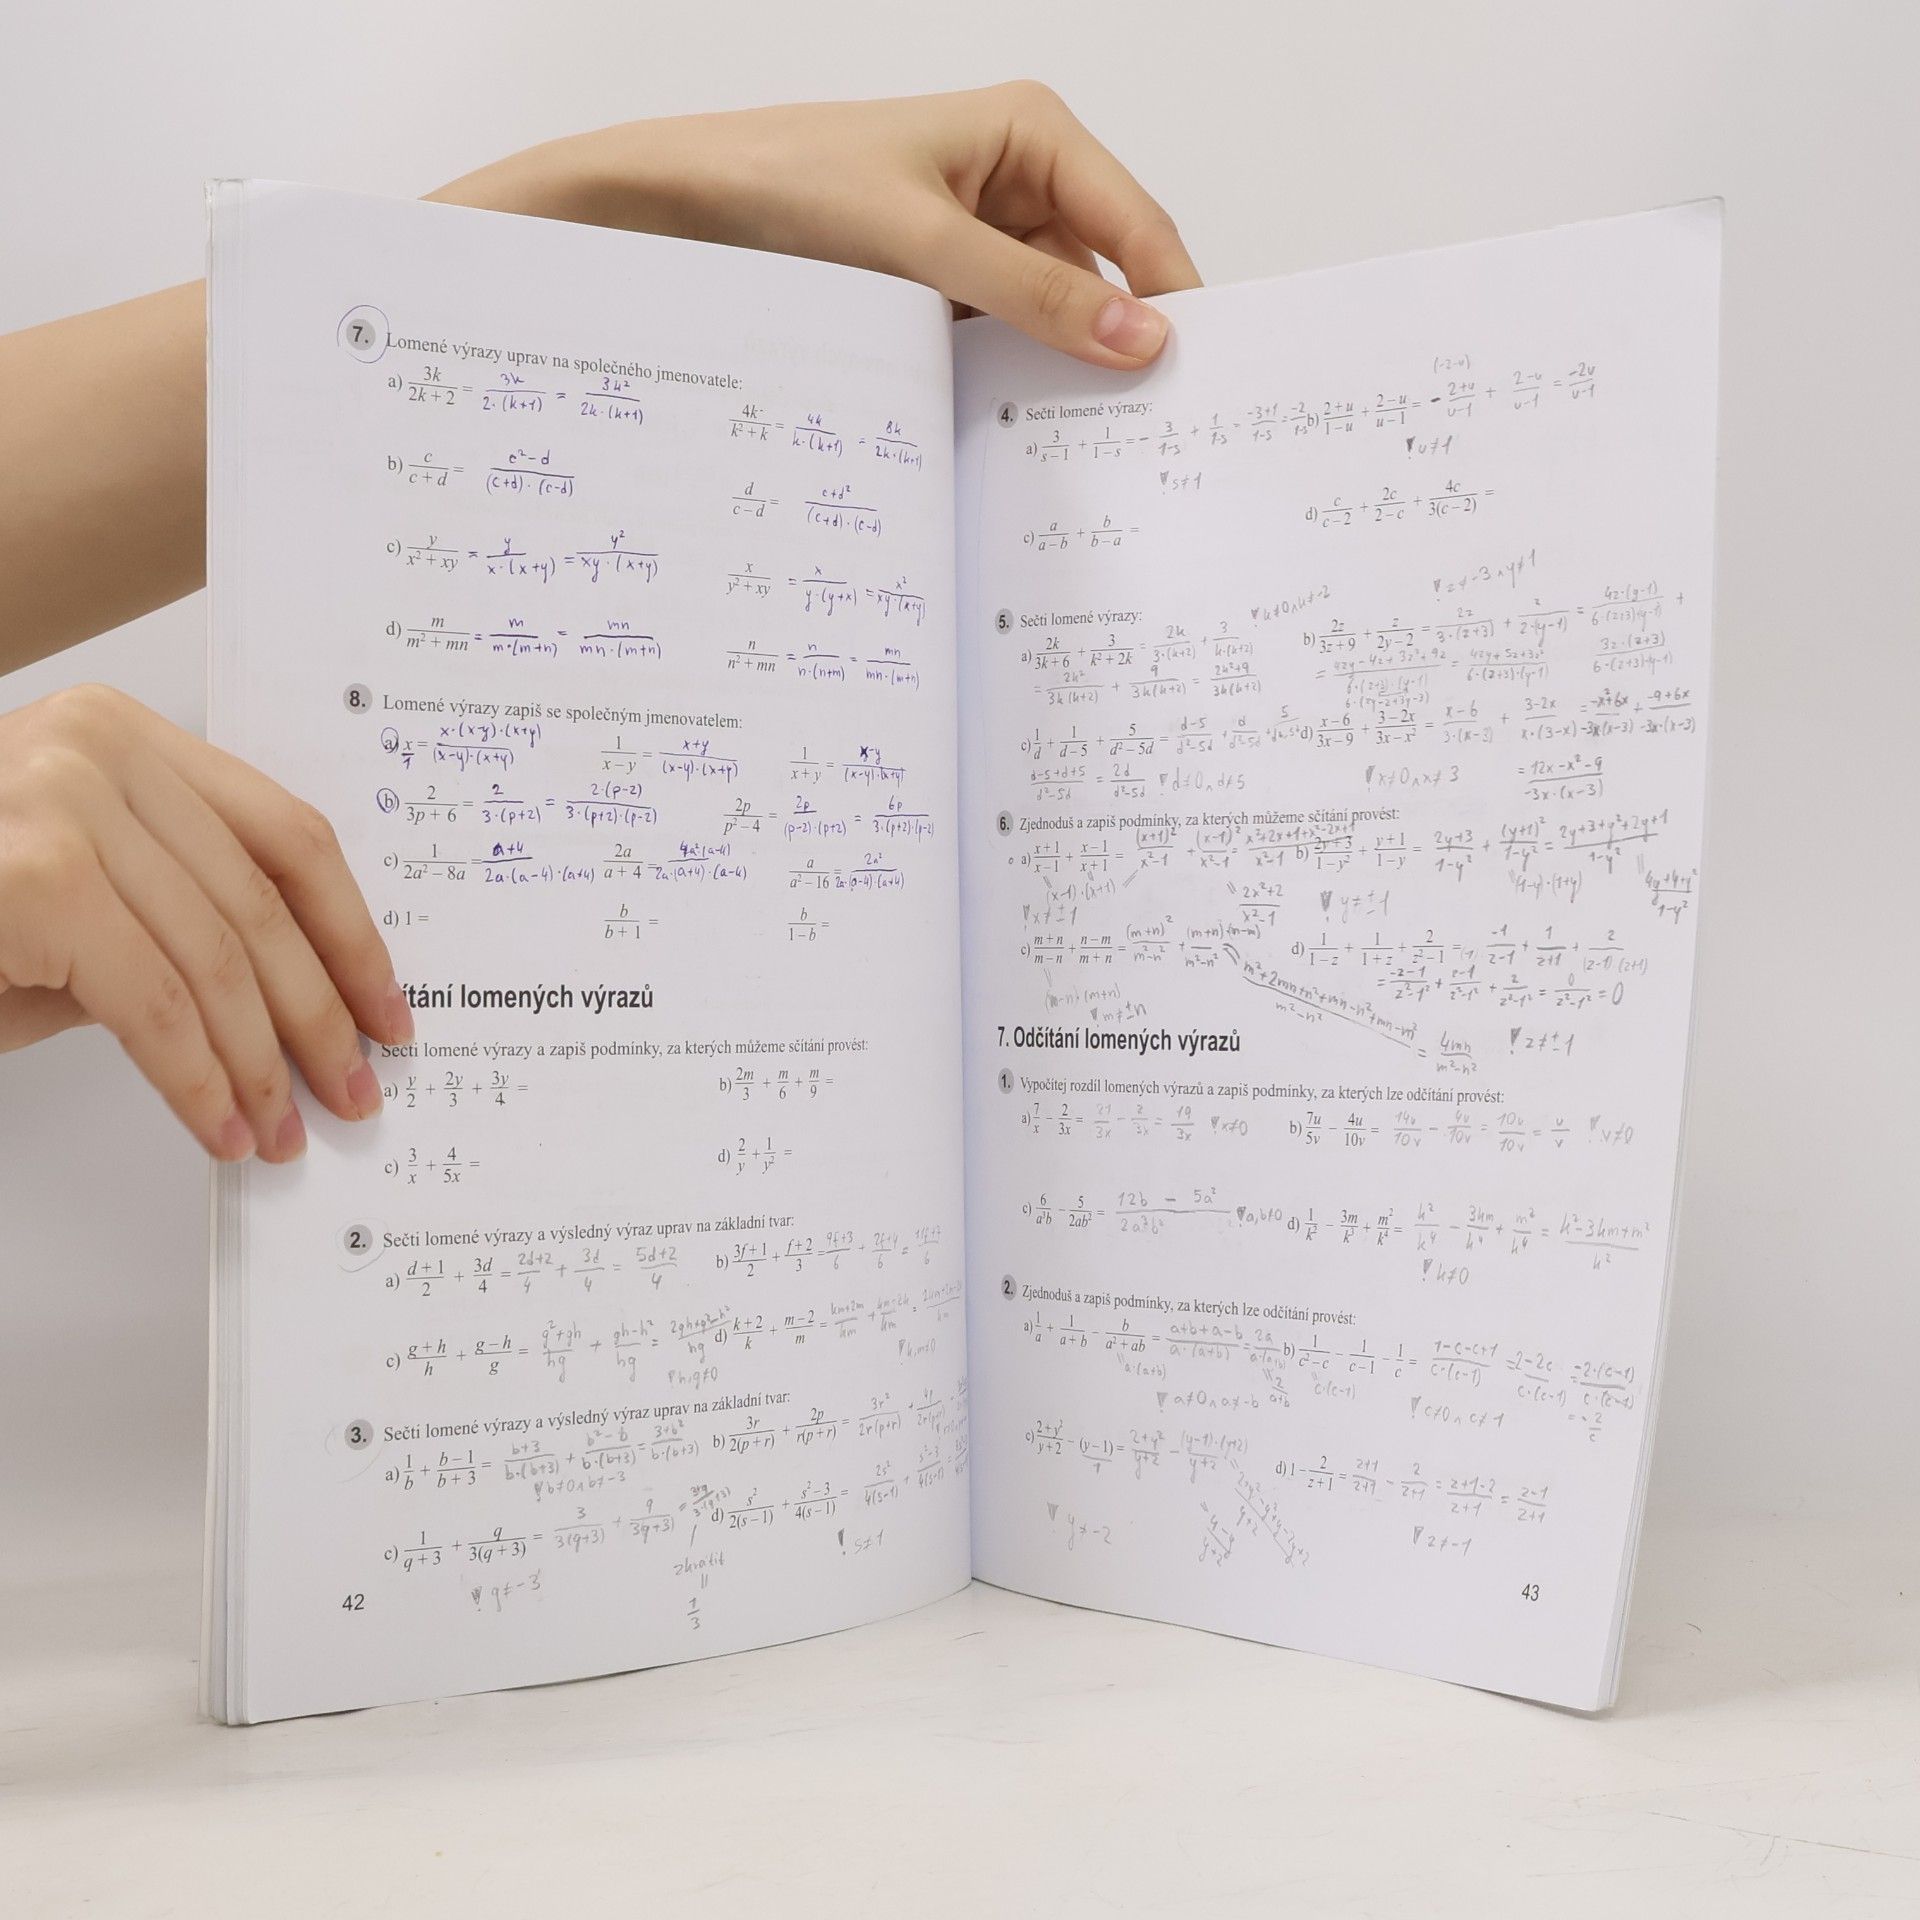 7. Lomené výrazy uprav na společného jmenovatele:
a) 3k/(2k + 2) = 3k/(2·(k+1)) = 3k²/(2k·(k+1))
4k/(k² + k) = 4k/(k·(k+1)) = 8k/(2k·(k+1))
b) c/(c + d) = (c²-d)/((c+d)·(c-d))
d/(c – d) = (c+d²)/((c+d)·(c-d))
c) y/(x² + xy) = y/(x·(x+y)) = y²/(xy·(x+y))
x/(y² + xy) = x/(y·(y+x)) = x²/(xy·(x+y))
d) m/(m² + mn) = m/(m·(m+n)) = mn/(mn·(m+n))
n/(n² + mn) = n/(n·(n+m)) = mn/(mn·(m+n))
8. Lomené výrazy zapiš se společným jmenovatelem:
a) x/1 = x·(x-y)·(x+y)/((x-y)·(x+y))
1/(x – y) = (x+y)/((x-y)·(x+y))
1/(x + y) = (x-y)/((x-y)·(x+y))
b) 2/(3p + 6) = 2/(3·(p+2)) = 2·(p-2)/(3·(p+2)·(p-2))
2p/(p² – 4) = 2p/((p-2)·(p+2)) = 6p/(3·(p+2)·(p-2))
c) 1/(2a² – 8a) = (a+4)/(2a·(a-4)·(a+4))
2a/(a + 4) = 4a²(a-4)/(2a·(a+4)·(a-4))
a/(a² – 16) = 2a²/(2a·(a-4)·(a+4))
d) 1 =
b/(b + 1) =
b/(1 – b) =
ítání lomených výrazů
Sečti lomené výrazy a zapiš podmínky, za kterých můžeme sčítání provést:
a) y/2 + 2y/3 + 3y/4 =
b) 2m/3 + m/6 + m/9 =
c) 3/x + 4/5x =
d) 2/y + 1/y² =
2. Sečti lomené výrazy a výsledný výraz uprav na základní tvar:
a) (d + 1)/2 + 3d/4 = (2d+2)/4 + 3d/4 = (5d+2)/4
b) (3f + 1)/2 + (f + 2)/3 = (9f+3)/6 + (2f+4)/6 = (11f+7)/6
c) (g + h)/h + (g – h)/g = (g²+gh)/hg + (gh-h²)/hg =
! h,g≠0
d) (k + 2)/k + (m – 2)/m = (km+2m)/km + (km-2k)/km =
! k,m≠0
3. Sečti lomené výrazy a výsledný výraz uprav na základní tvar:
a) 1/b + (b – 1)/(b + 3) = (b+3)/(b·(b+3)) + (b²-b)/(b·(b+3)) = (3+b²)/(b·(b+3))
! b≠0 ∧ b≠-3
b) 3r/(2(p + r)) + 2p/(r(p + r)) = 3r²/(2r(p+r)) +
c) 1/(q + 3) + q/(3(q + 3)) = 3/(3(q+3)) + q/(3(q+3)) =
zkrátit
=
1/3
! q≠-3
d) s²/(2(s – 1)) + (s² – 3)/(4(s – 1)) = 2s²/(4(s-1)) + (s²-3)/(4(s-1))
! s≠1
42
4. Sečti lomené výrazy:
a) 3/(s – 1) + 1/(1 – s) = - 3/(1-s) + 1/(1-s) = (-3+1)/(1-s) = -2/(1-s)
! s≠1
(-2-u)
b) (2 + u)/(1 – u) + (2 – u)/(u – 1) = - (2+u)/(u-1) + (2-u)/(u-1) = -2u/(u-1)
! u≠1
c) a/(a – b) + b/(b – a) =
d) c/(c – 2) + 2c/(2 – c) + 4c/(3(c – 2)) =
5. Sečti lomené výrazy:
! k≠0 ∧ k≠-2
a) 2k/(3k + 6) + 3/(k² + 2k) = 2k/(3·(k+2)) + 3/(k·(k+2))
= 2k²/(3k(k+2)) + 9/(3k(k+2)) = (2k²+9)/(3k(k+2))
! z≠-3 ∧ y≠1
b) 2z/(3z + 9) + z/(2y – 2) = 2z/(3·(z+3)) + z/(2·(y-1)) = 4z·(y-1)/(6·(z+3)·(y-1)) +
3z·(z+3)/(6·(z+3)·(y-1))
= (4zy-4z+3z²+9z)/(6·(z+3)·(y-1)) = (4zy+5z+3z²)/(6·(z+3)·(y-1))
c) 1/d + 1/(d – 5) + 5/(d² – 5d) = (d-5)/(d²-5d) + d/(d²-5d) + 5/(d²-5d)
(d-5+d+5)/(d²-5d) = 2d/(d²-5d) ! d≠0 ∧ d≠5
d) (x – 6)/(3x – 9) + (3 – 2x)/(3x – x²) = (x-6)/(3·(x-3)) + (3-2x)/(x·(3-x)) = (-x²+6x)/(-3x(x-3)) + (-9+6x)/(-3x·(x-3))
! x≠0 ∧ x≠3
= (12x-x²-9)/(-3x·(x-3))
6. Zjednoduš a zapiš podmínky, za kterých můžeme sčítání provést:
a) (x + 1)/(x – 1) + (x – 1)/(x + 1) = (x+1)²/(x²-1) + (x-1)²/(x²-1) = (x²+2x+1+x²-2x+1)/(x²-1)
(x-1)·(x+1)
= (2x²+2)/(x²-1)
! x≠±1
b) (2y + 3)/(1 – y²) + (y + 1)/(1 – y) = (2y+3)/(1-y²) + (y+1)²/(1-y²) = (2y+3+y²+2y+1)/(1-y²)
(1-y)·(1+y)
(4y+4+y²)/(1-y²)
! y≠±1
c) (m + n)/(m – n) + (n – m)/(m + n) = (m+n)²/(m²-n²) + (m+n)·(n-m)/(m²-n²)
(m-n)·(m+n)
! m≠±n
(m²+2mn+n²+mn-n²+mn-m²)/(m²-n²) = 4mn/(m²-n²)
d) 1/(1 – z) + 1/(1 + z) + 2/(z² – 1) = -1/(z-1) + 1/(z+1) + 2/((z-1)(z+1))
= (-z-1)/(z²-1²) + (z-1)/(z²-1²) + 2/(z²-1²) = 0/(z²-1²) = 0
! z≠±1
7. Odčítání lomených výrazů
1. Vypočítej rozdíl lomených výrazů a zapiš podmínky, za kterých lze odčítání provést:
a) 7/x – 2/3x = 21/3x - 2/3x = 19/3x ! x≠0
b) 7u/5v – 4u/10v = 14u/10v - 4u/10v = 10u/10v = u/v ! v≠0
c) 6/a³b – 5/2ab² = (12b - 5a²)/2a³b² ! a,b≠0
d) 1/k² – 3m/k³ + m²/k⁴ = k²/k⁴ - 3km/k⁴ + m²/k⁴ = (k²-3km+m²)/k²
! k≠0
2. Zjednoduš a zapiš podmínky, za kterých lze odčítání provést:
a) 1/a + 1/(a + b) – b/(a² + ab) = (a+b+a-b)/(a·(a+b)) = 2a/(a·(a+b))
a·(a+b)
= 2/(a+b)
! a≠0 ∧ a≠-b
b) 1/(c² – c) – 1/(c – 1) – 1/c = (1-c-c+1)/(c·(c-1)) = (2-2c)/(c·(c-1)) = -2·(c-1)/(c·(c-1))
c·(c-1)
! c≠0 ∧ c≠1
= -2/c
c) (2 + y²)/(y + 2) – (y – 1)/1 = (2+y²)/(y+2) - (y-1)·(y+2)/(y+2)
! y≠-2
d) 1 – 2/(z + 1) = (z+1)/(z+1) - 2/(z+1) = (z+1-2)/(z+1) = (z-1)/(z+1)
! z≠-1
43